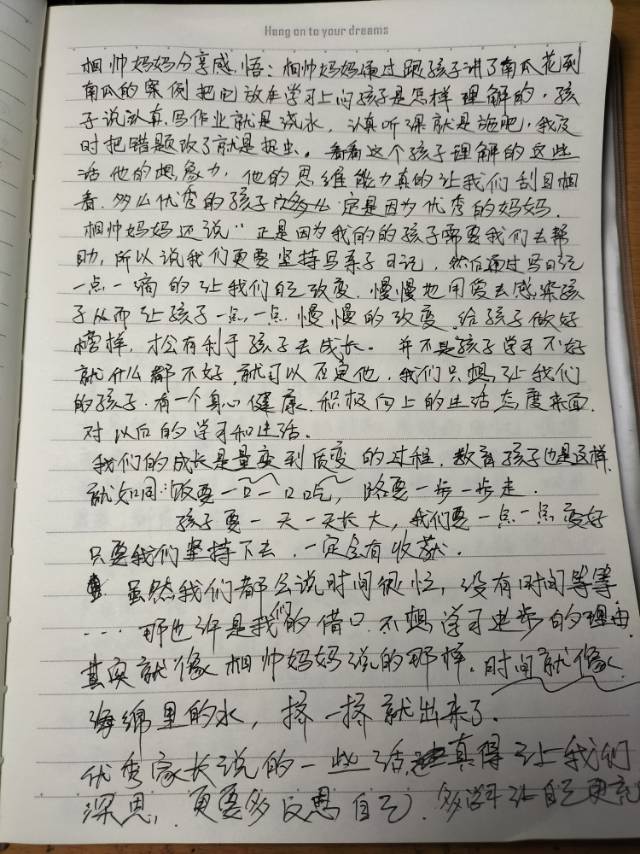 Hang on to your dreams
相帅妈妈分享感悟：相帅妈妈通过跟孩子讲了南瓜花到
南瓜的案例把它放在学习上问孩子是怎样理解的，孩
子说认真写作业就是浇水，认真听课就是施肥，我及
时把错题改了就是捉虫。看看这个孩子理解的这些
话他的想象力，他的思维能力真的让我们刮目相
看。多么优秀的孩子 定是因为优秀的妈妈。
相帅妈妈还说“正是因为我的的孩子需要我们去帮
助，所以说我们更要坚持写亲子日记，然后通过写日记
一点一滴的让我们自己改变，慢慢地用爱去感染孩
子从而让孩子一点一点 慢慢的改变 给孩子做好
榜样，才会有利于孩子去成长。并不是孩子学习不好
就什么都不好，就可以否定他，我们只想让我们
的孩子，有一个身心健康、积极向上的生活态度来面
对以后的学习和生活。
我们的成长是量变到质变的过程，教育孩子也是这样，
就如同：饭要一口一口吃，路要一步一步走．
孩子要一天一天长大，我们要一点一点变好
只要我们坚持下去，一定会有收获．
虽然我们都会说时间很忙，没有时间等等
... 那也许是我们的借口 不想学习进步的理由．
其实就像相帅妈妈说的那样，时间就像
海绵里的水，挤一挤就出来了．
优秀家长说的一些话真得让我们
深思，更要多反思自己，多学习让自己更